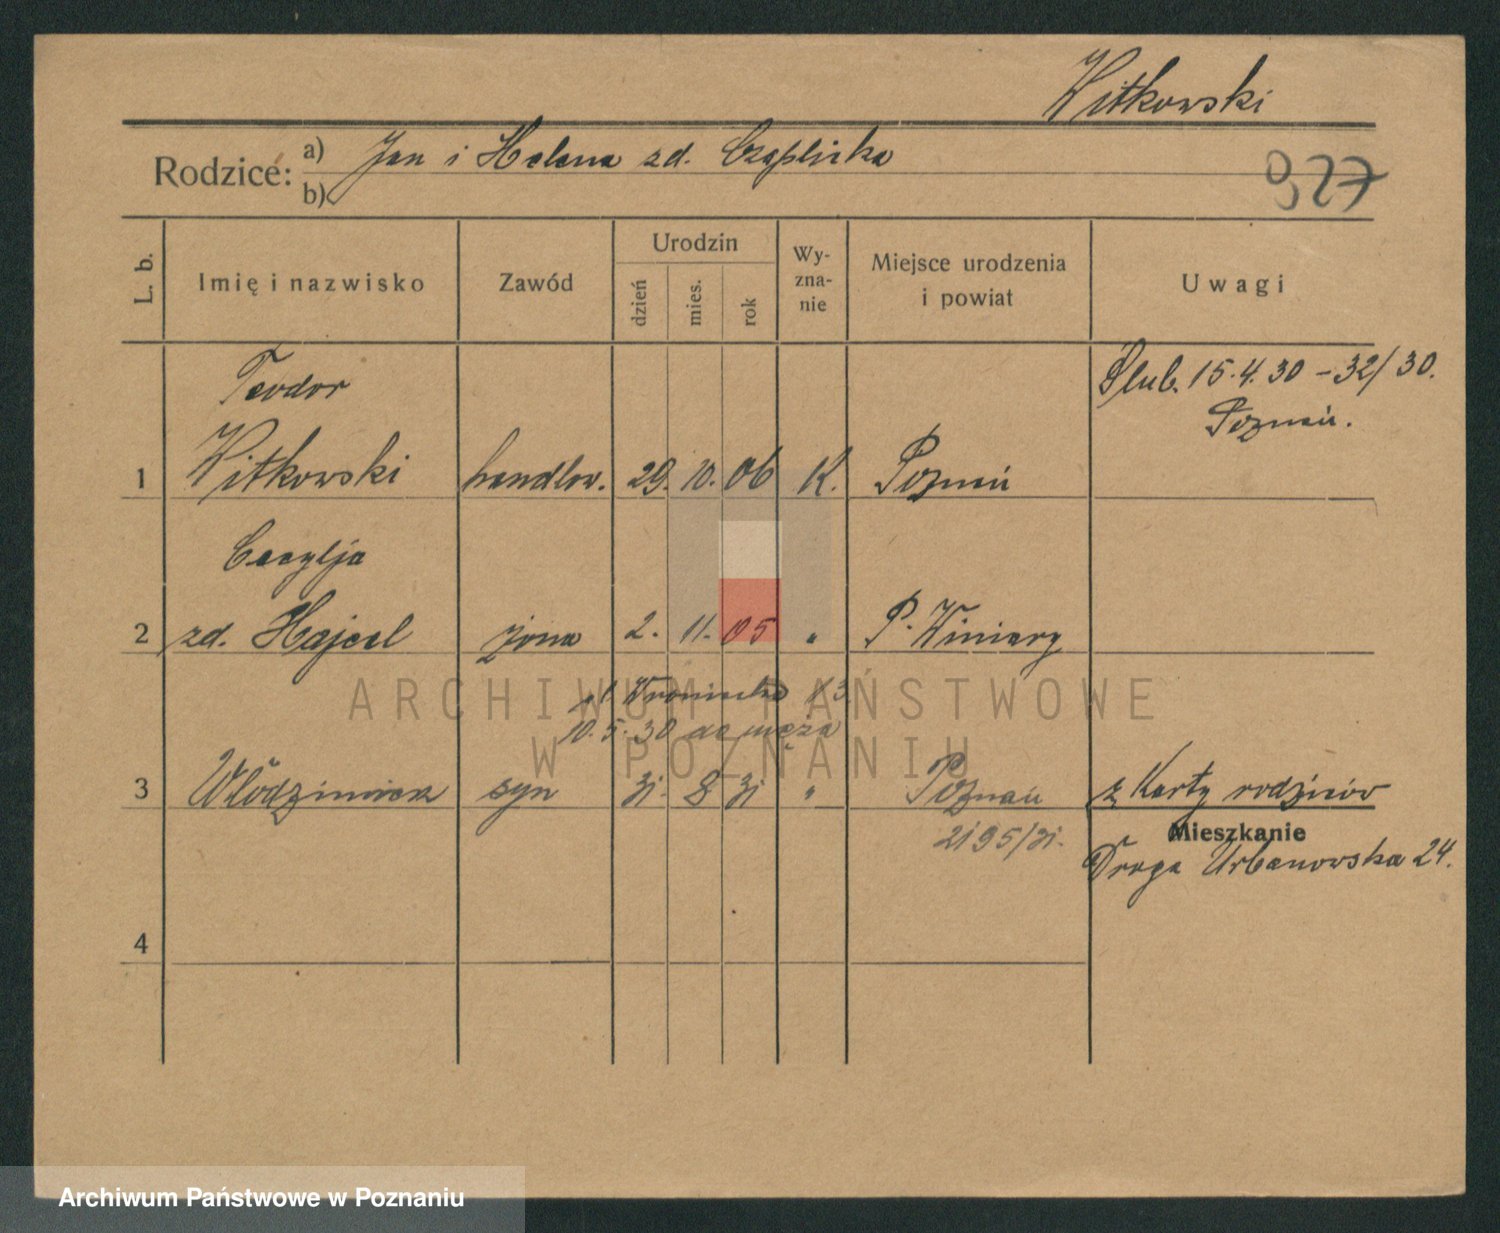 Witkowski
Rodzice: a) Jan i Helena zd. Czaplicka
b)
927
L. b.
Imię i nazwisko
Zawód
Urodzin
dzień
mies.
rok
Wy-
zna-
nie
Miejsce urodzenia
i powiat
Uwagi
Teodor
Ślub. 15.4.30 – 32/30.
Poznań.
1 Witkowski handlow. 29. 10. 06 K. Poznań
Cecylja
2 zd. Hajcel żona 2. 11. 05 " P. Winiary
Wroniecka
10.5.30 do męża
3 Włodzimierz syn 31. 8 31 " Poznań z Karty rodziców
2195/31.
Mieszkanie
Droga Urbanowska 24.
4
ARCHIWUM PAŃSTWOWE
W POZNANIU
Archiwum Państwowe w Poznaniu